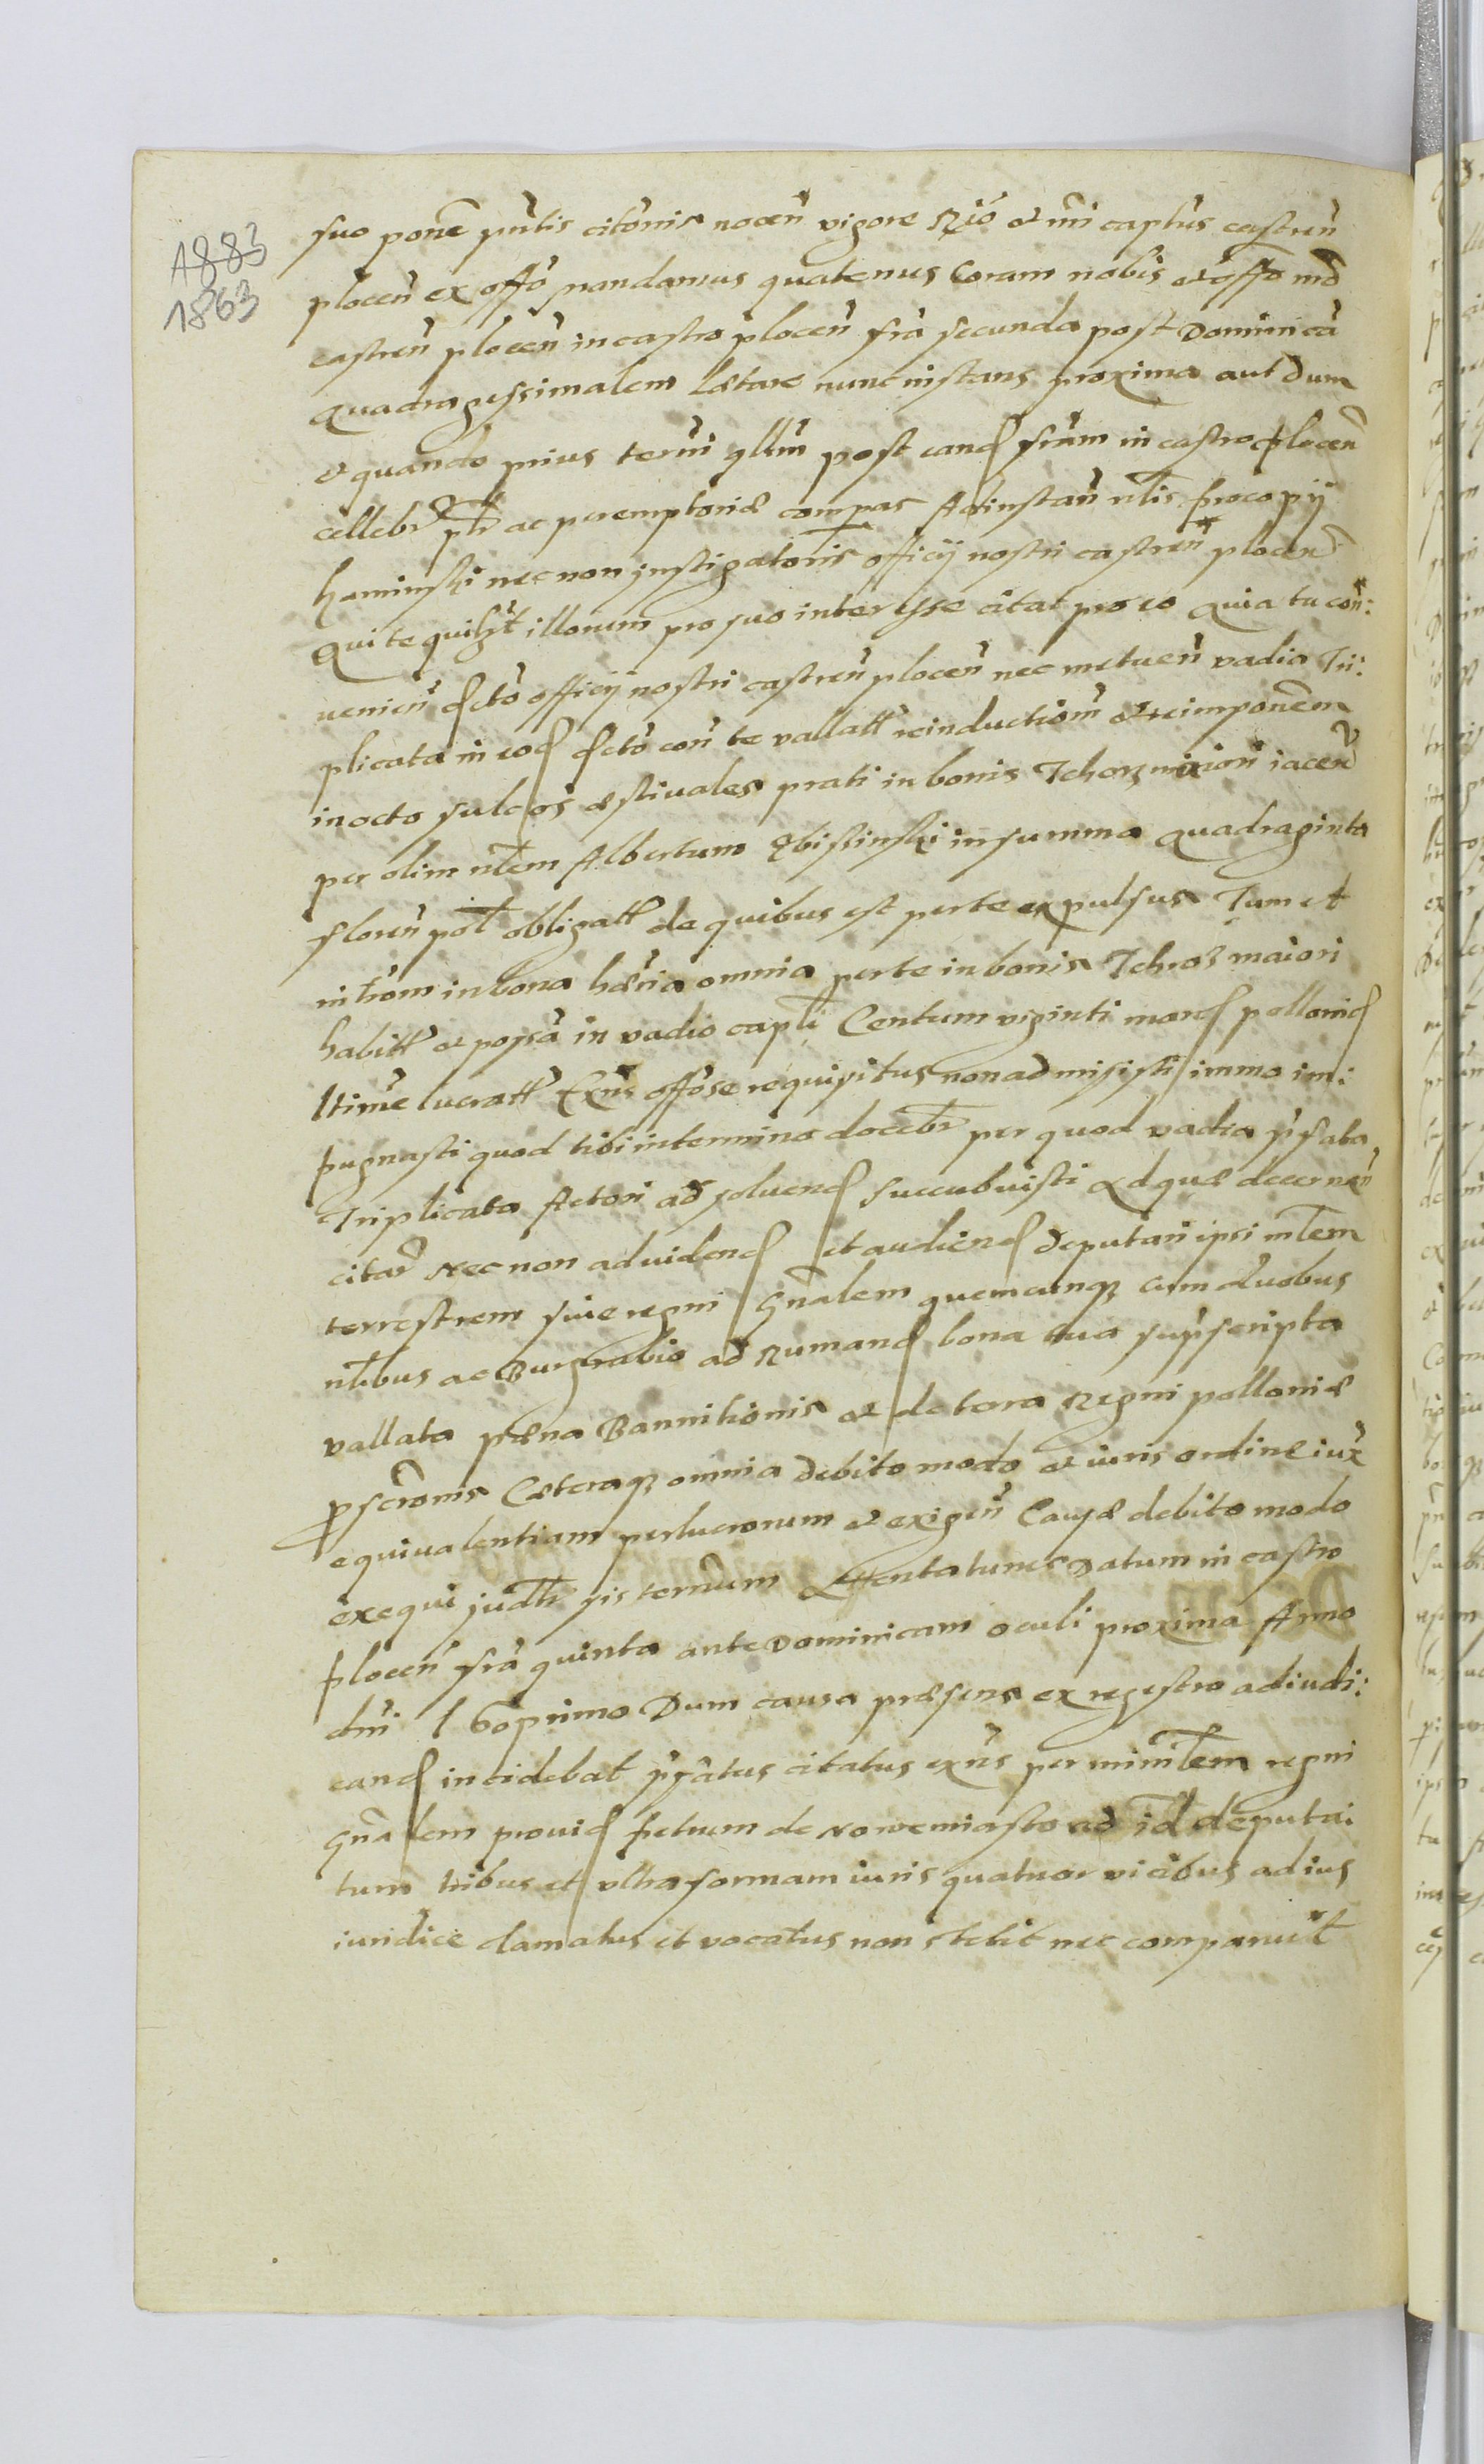 1883
1863
suo pone pntis citonis nocen vigore Rio et mi captus castren
plocen ex offo mandamus quatenus Coram nobis et offo nro
castren plocen in castro plocen fria secunda post Dominica
quadragessimalem Lætare nunc instans proxima aut dum
et quando prius termi qllm post eand friam in castro plocen
cellebr ptr ac peremptoriæ compas Ad instan nlis Procopij
Kaminski nec non instigatoris officij nostri castren plocen
Qui te quilzt illorum pro suo interesse citat pro eo quia tu con:
venien dcto officij nostri castren plocen nec metuen vadia Tri:
plicata in eod dcto con te vallatt reinductiom et reimponem
in octo sulcos æstivales prati in bonis Tchorz iacen
per olim nlem Albertum in summa quadraginta
floren pol obligatt de quibus est per te expulsus Tum et
introm in bona hæria omnia per te in bonis Tchorz maiori
habitt et possa in vadio capli Centum viginti marc pollonic
ltime lucratt Exns offose requisitus non admisisti immo im:
pugnasti quod tibi in termino docebr per quod vadia pfata
Triplicata Actori ad solvend succubuisti Ad quæ decernen
citar Nec non ad videnc et audiend deputari ipsi mlem
terrestrem sive regni gnalem quemcunq cum duobus
nlibus ac Burgrabio ad Rumand bona tua supscripta
vallata pæna Bannitionis et de terra Regni polloniæ
pscrōnis Cæteraq omnia debito modo et iuris ordine iux
equivalentiam perlucrorum et exigen Causæ debito modo
exequi judtr sis termum Attentaturus Datum in castro
plocen fria quinta ante Dominicam oculi proxima Anno
dni 160primo Dum causa præsens ex regestro adiudi:
cand incidebat pfatus citatus exns per minlem regni
gnalem provid petrum de Nowemiasto ad id deputa
tum tribus et ultra formam iuris quatuor vicibus ad ius
iuridice clamatus et vocatus non stetit nec comparuit